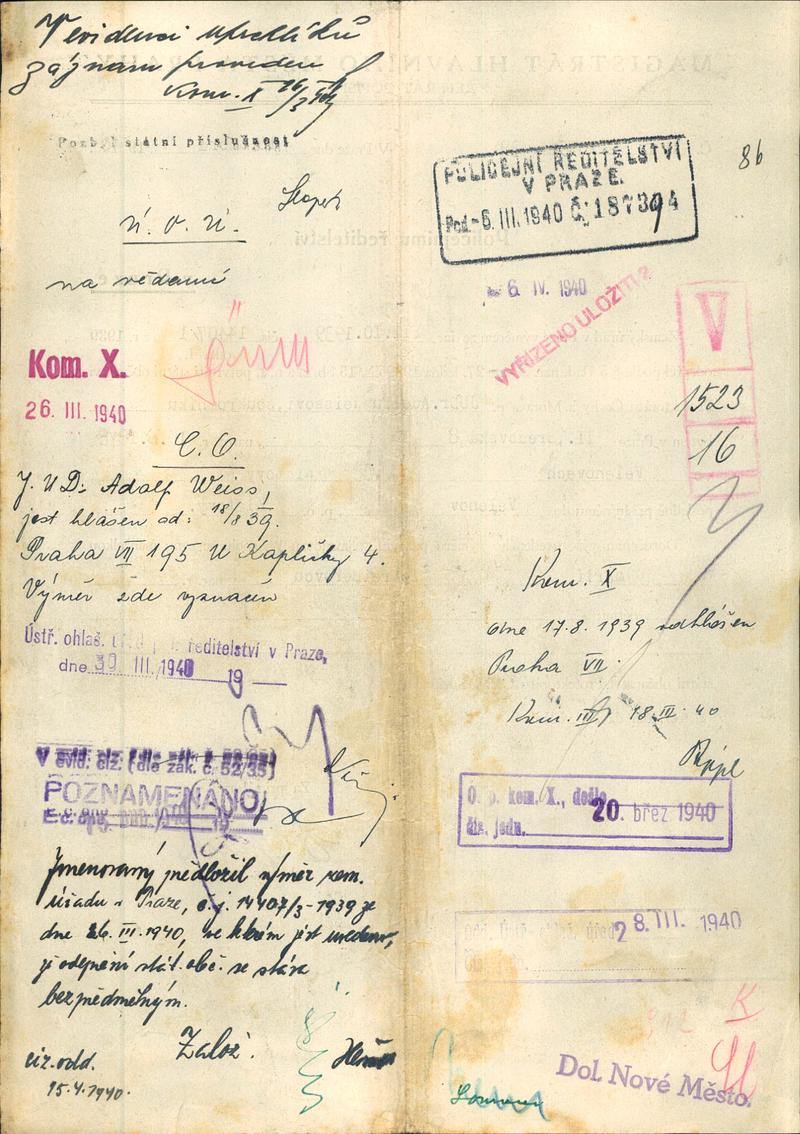 V evidenci
záznam proveden
Kom. X
Pozbyl státní příslušnost
ú. o. ú.
na vědomí
Kom. X.
26. III. 1940
C. O.
J. U D: Adolf Weiss,
jest hlášen od: 18/8 39.
Praha VII 195 U Kapličky 4.
Výměr zde vyznačen
Ústř. ohlaš. ředitelství v Praze,
dne 30 III. 1940 19
V evid. ciz. (dle zák. č. 52/35)
POZNAMENÁNO
Jmenovaný předložil výměr zem.
úřadu v Praze, č. j. 14407/3-1939 ze
dne 26. III. 1940, ve kterém jest uvedeno,
že odepření stát. obč. se stává
bezpředmětným.
Založ.
ciz. odd.
15.4.1940.
86
POLICEJNÍ ŘEDITELSTVÍ
V PRAZE.
Pod. -6. III. 1940 Č. 187394
6. IV. 1940
VYŘÍZENO ULOŽITI?
V
1523
16
Kom. X
dne 17.8. 1939 odhlášen
Praha VII.
18 III. 40
O. p. kom. X., došlo
20. břez 1940
čís. jedn.
2 8. III. 1940
K
Dol. Nové Město.